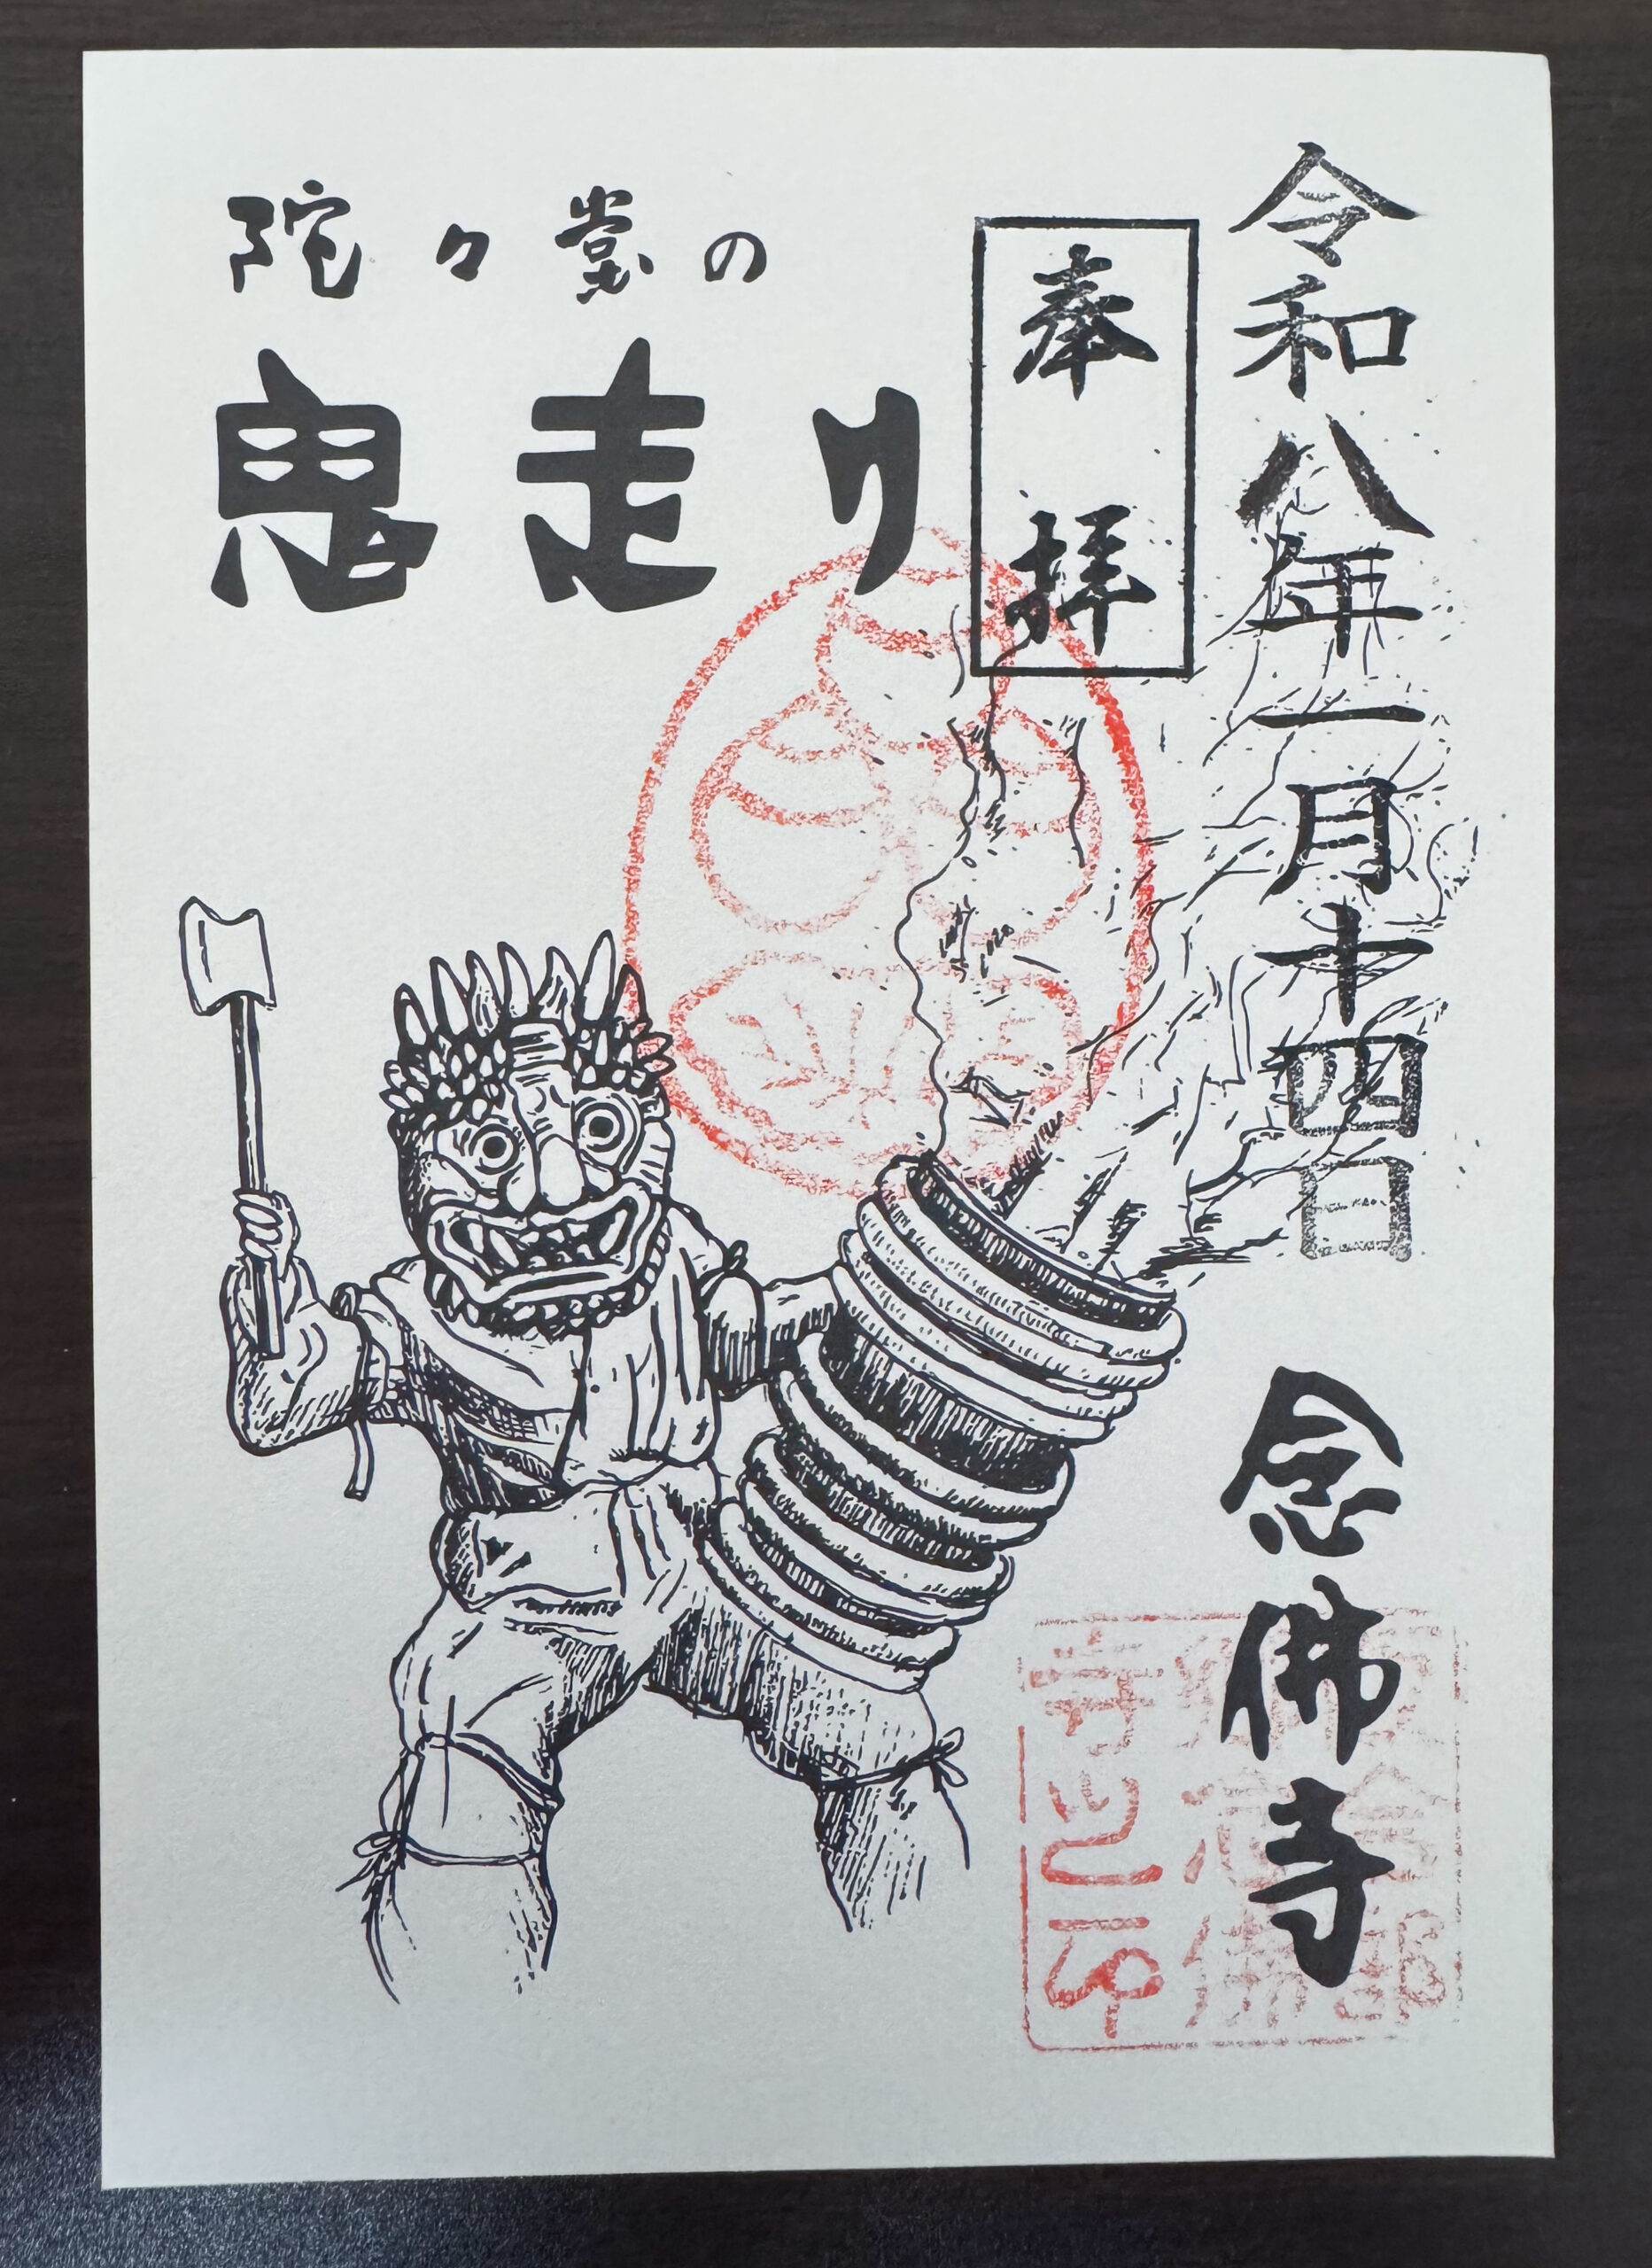 令和八年一月十四日
奉拝
陀々堂の
鬼走り
念佛寺